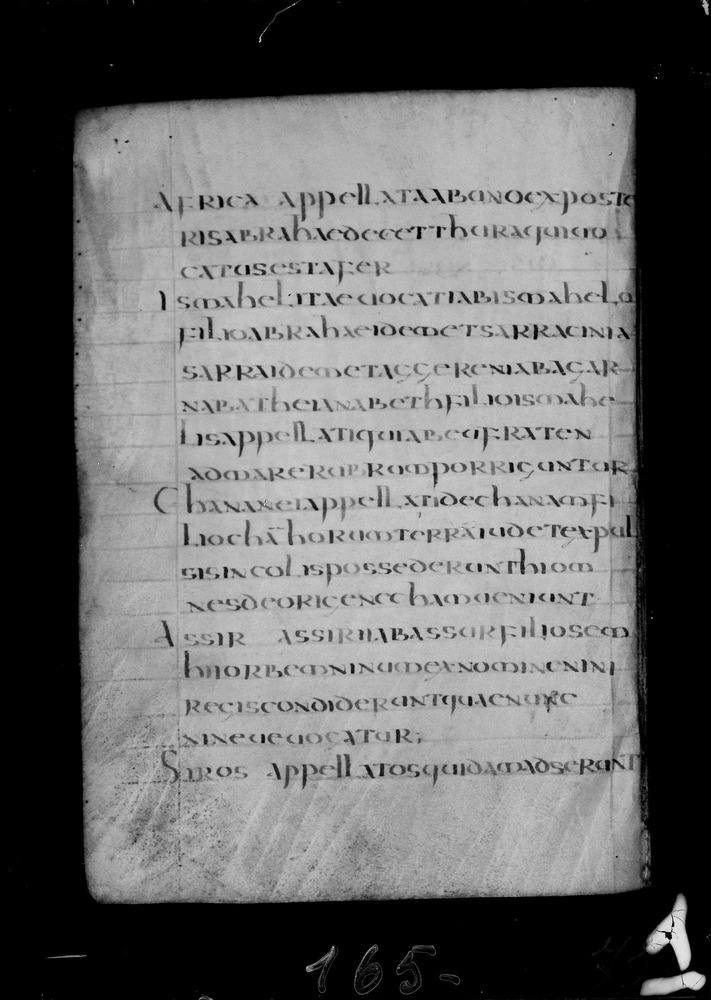 AFRICA AppellATAABUNOEXPOSTE
RISABRAhAEDECETThURAQUIUO
CATUSESTAFER
ISMAhELITAEUOCATIABISMAhELO
FILIOABRAhAEIDEMETSARRACINIA
SARRAIDEMETAGGERENIABAGAR
NABAThEIANABEThFILIOISMAhE
LISAppellATIQUIABEUFRATEN
ADMARERUBROMPORRIGUNTUR
ChANANEIAppellATIDEChANAMFI
LIOChĀhORUMTERRĀIUDETEXPUL
SISINCOLISPOSSEDERUNThIOM
NESDEORIGENECHAMUENIUNT
ASSIR ASSIRIIABASSURFILIOSEM
hIIORBEMNINUMEXNOMINENINI
REGISCONDIDERUNTQUAENUNC
NINEUEUOCATUR;
SIROS AppellATOSQUIDAMADSERUNT
165-